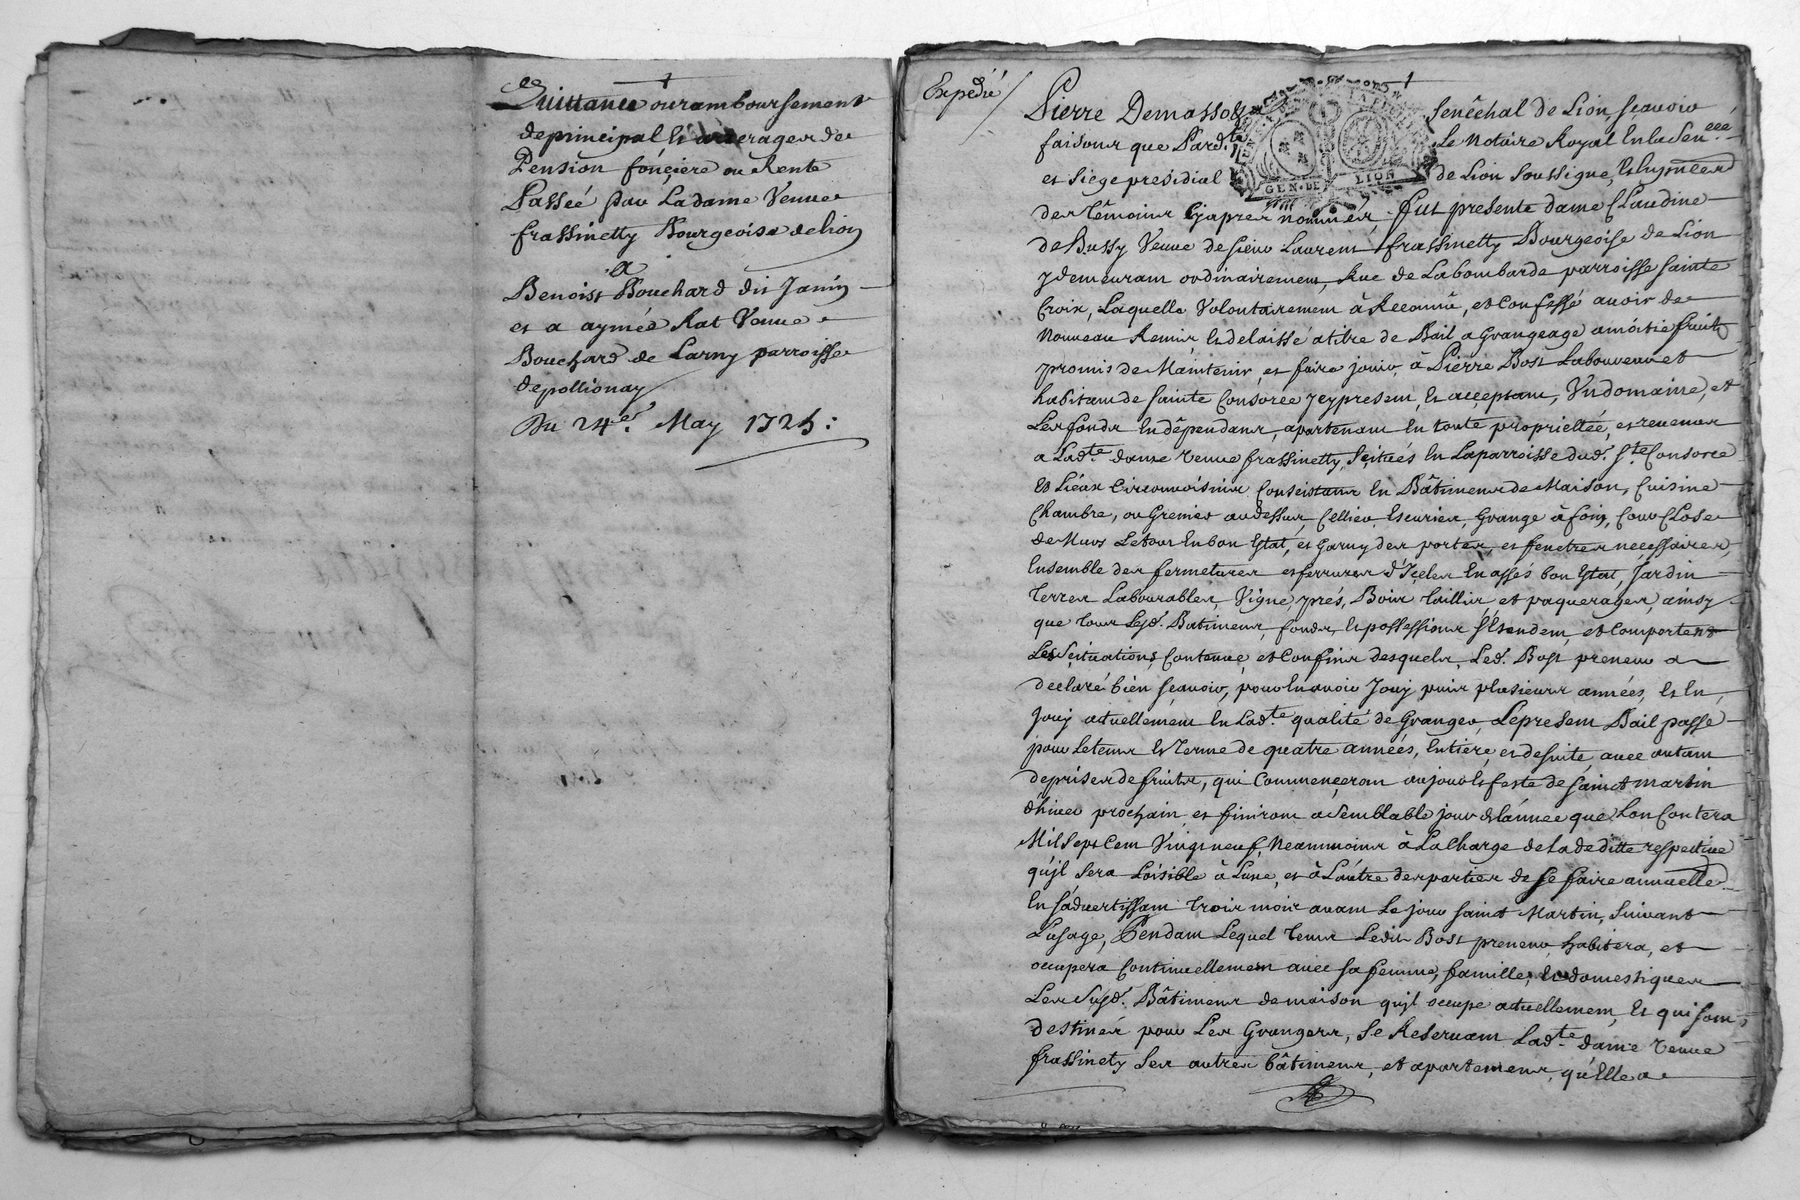 Quittance ou ramboursement
de principal et arrerages de
Pension fonçiere ou Rente
Passée par La dame Veuve
frassinetty Bourgeoise de lion
a
Benoist Bouchard dit Janin
et a aymée Rat Veuve
Bouchard de Larny parroisse
de pollionay
Du 24e. May 1725:
Expédié
Pierre Demasso Senêchal de Lion sçavoir
faisons que Pardt. Le Notaire Royal En la Senceé
et siege presidial de Lion soussigné, Et En presence
GEN. DE LION
des têmoins Cy apres nommés, fut presente dame Claudine
de Bussy Veuve de sieur Laurent frassinetty Bourgeoise de Lion
y demeurant ordinairement, Rue de La bombarde parroisse sainte
Croix, Laquelle Volontairement à Reconnû, et Confessé avoir de
Nouveau Remis, et delaissé a titre de Bail a Grangeage a moitié fruits
promis de Maintenir, et faire jouir, à Pierre Bost Laboureur et
habitant de sainte Consorce y cy present, et acceptant, Un domaine, et
Les fonds En dêpendans, apartenant En toute proprieltée, et revenus
a Ladte. dame veuve frassinetty, Scitués En La parroisse dud. Ste Consorce
Et Liéux Circonvoisins Consistans En Bâtimens de Maison, Cuisine
Chambre, ou Grenier au dessus, Cellier, Escuries, Grange à foin, Cour Close
de Murs Le tout En bon Estat, et Garny des portes, et fenetres necessaires,
Ensemble des fermetures et ferrures d'Içelles En assés bon Estat, Jardin
Terres Labourables, Vigne, prés, Bois taillis, et paquerages, ainsy
que tous Lesd. Batimens, fonds, et possessions s'Etendent, et Comportent
Les Scituations, Contenue, et Confins desquels, Led. Bost preneur a
declaré bien sçavoir, pour En avoir Jouy puis plusieurs années, et En
Jouy actuellement En Ladte qualité de Granger, Le present Bail passé
pour Le tems et Terme de quatre années, Entiere, et de suite, avec autant
de prises de fruits, qui Commenceront au jour et feste de sainct martin
d'hiver prochain, et finiront a semblable jour de l'annee que Lon Contera
Mil Sept Cent Vingt neuf, Neanmoins à La Charge de la de ditte respective
qu'jl sera Loisible à Lune, et à L'autre des parties de se faire annuelle
En s'advertissant trois mois avant Le jour saint Martin, Suivant
L'usage, Pendant Lequel tems Ledit Bost preneur habitera, et
occupera Continuellement avec sa femme, famille, et domestiques
Les Susd. Bâtimens de maison qu'jl occupe actuellement, et qui sont
destinés pour Les Grangers, se Reservant Ladte. dame veuve
frassinety Ses autres bâtimens, et apartemens, qu'Elle a